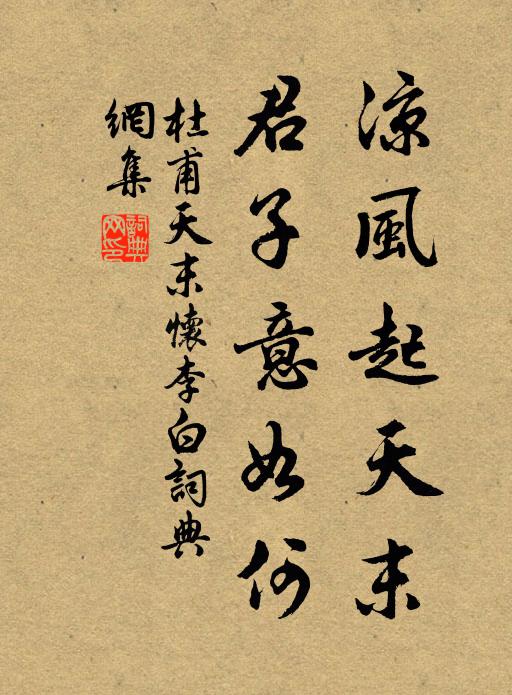 涼風起天末
君子意如何
杜甫天末懷李白詞典
網集
詞典網印